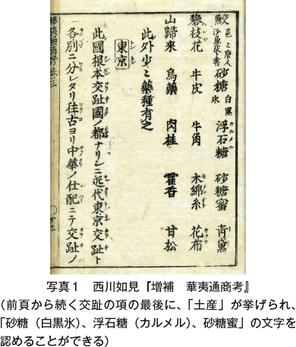 砂糖 白黒氷 浮石糖 カルメル 砂糖蜜 青黛
牛皮 牛角 木綿糸 花布
山歸來 烏藥 肉桂 藿香 甘松
此外少々藥種有之
東京
此國根本交趾國ノ都ナリシニ近代東京交趾ト
各別ニ分レタリ往古ヨリ中華ノ仕配ニテ交趾ノ
写真1 西川如見『増補 華夷通商考』
(前頁から続く交趾の項の最後に、「土産」が挙げられ、
「砂糖(白黒氷)、浮石糖(カルメル)、砂糖蜜」の文字を
認めることができる)